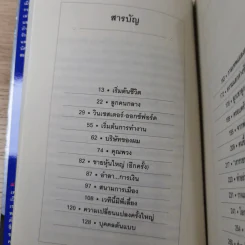 สารบัญ
13 • เริ่มต้นชีวิต
22 • ลูกคนกลาง
29 • วินเชสเตอร์ ออกซ์ฟอร์ด
55 • เริ่มต้นการทำงาน
62 • บริษัทของผม
74 • คุณพวง
82 • ขายหุ้นใหญ่ (อีกครั้ง)
87 • อำลา...การเงิน
97 • สนามการเมือง
108 • เวทีนี้มีพี่เลี้ยง
120 • ความเปลี่ยนแปลงครั้งใหญ่
128 • บุคคลต้นแบบ